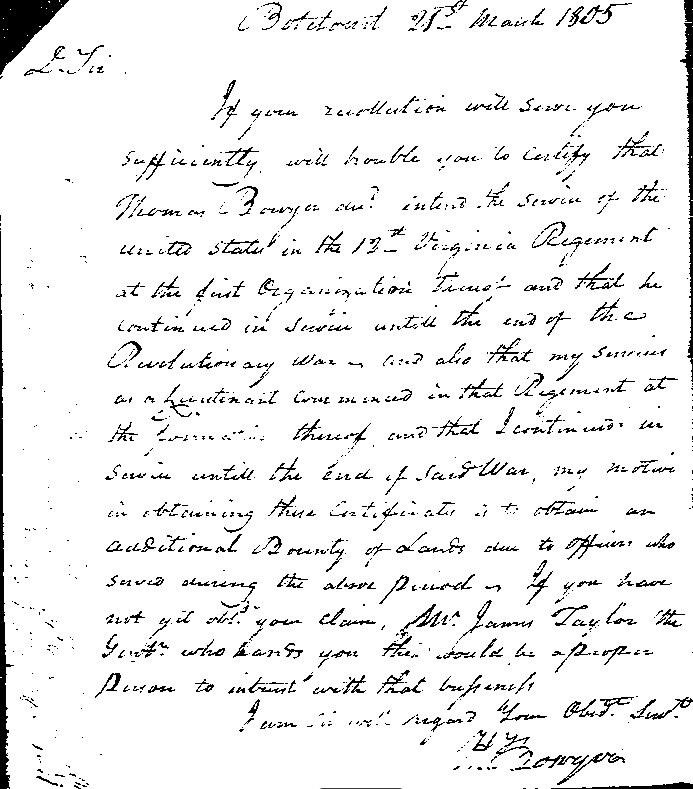 Botetourt 21st March 1805
Dr. Sir
If your recollection will serve you
sufficiently, will trouble you to certify that
Thomas Bowyer did intend the service of the
united States in the 12th Virginia Regement
at the first Organization and that he
continued in service untill the end of the
Revolutionary War and also that my services
as a Lieutenant commenced in that Regement at
the formation thereof and that I continued in
service untill the end of said War, my motive
in obtaining these certificates is to obtain an
additional Bounty of Lands due to officers who
served during the above period If you have
not yit obtd. your claim, Mr. James Taylor the
Gentn. who hands you this would be a proper
person to intrust with that bussiness
I am Sir with regard Your Obedt. Servt.
Hy Bowyer